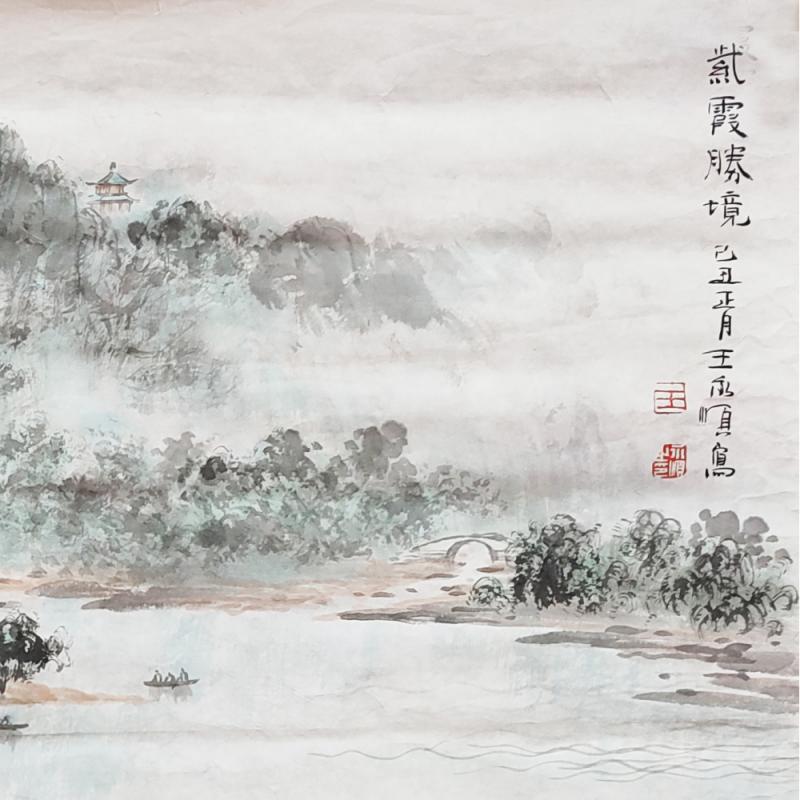 紫霞勝境
己丑正月王永順寫
王
永順